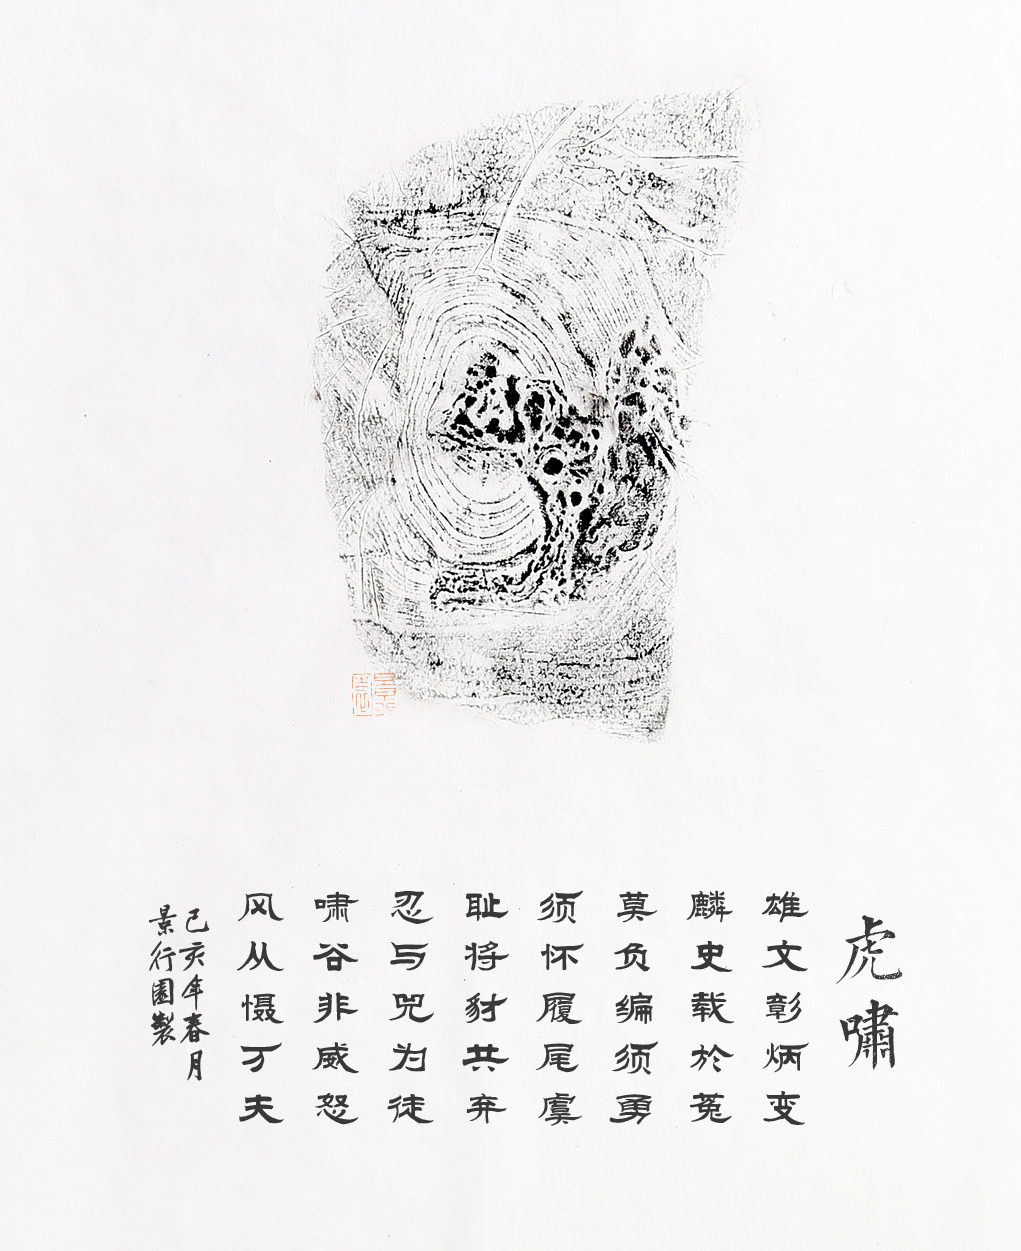 虎嘯
雄文彰炳变
麟史载於菟
莫负编须勇
须怀履尾虞
耻将豺共弃
忍与兕为徒
啸谷非威怒
风从慑万夫
己亥年春月
景行園製